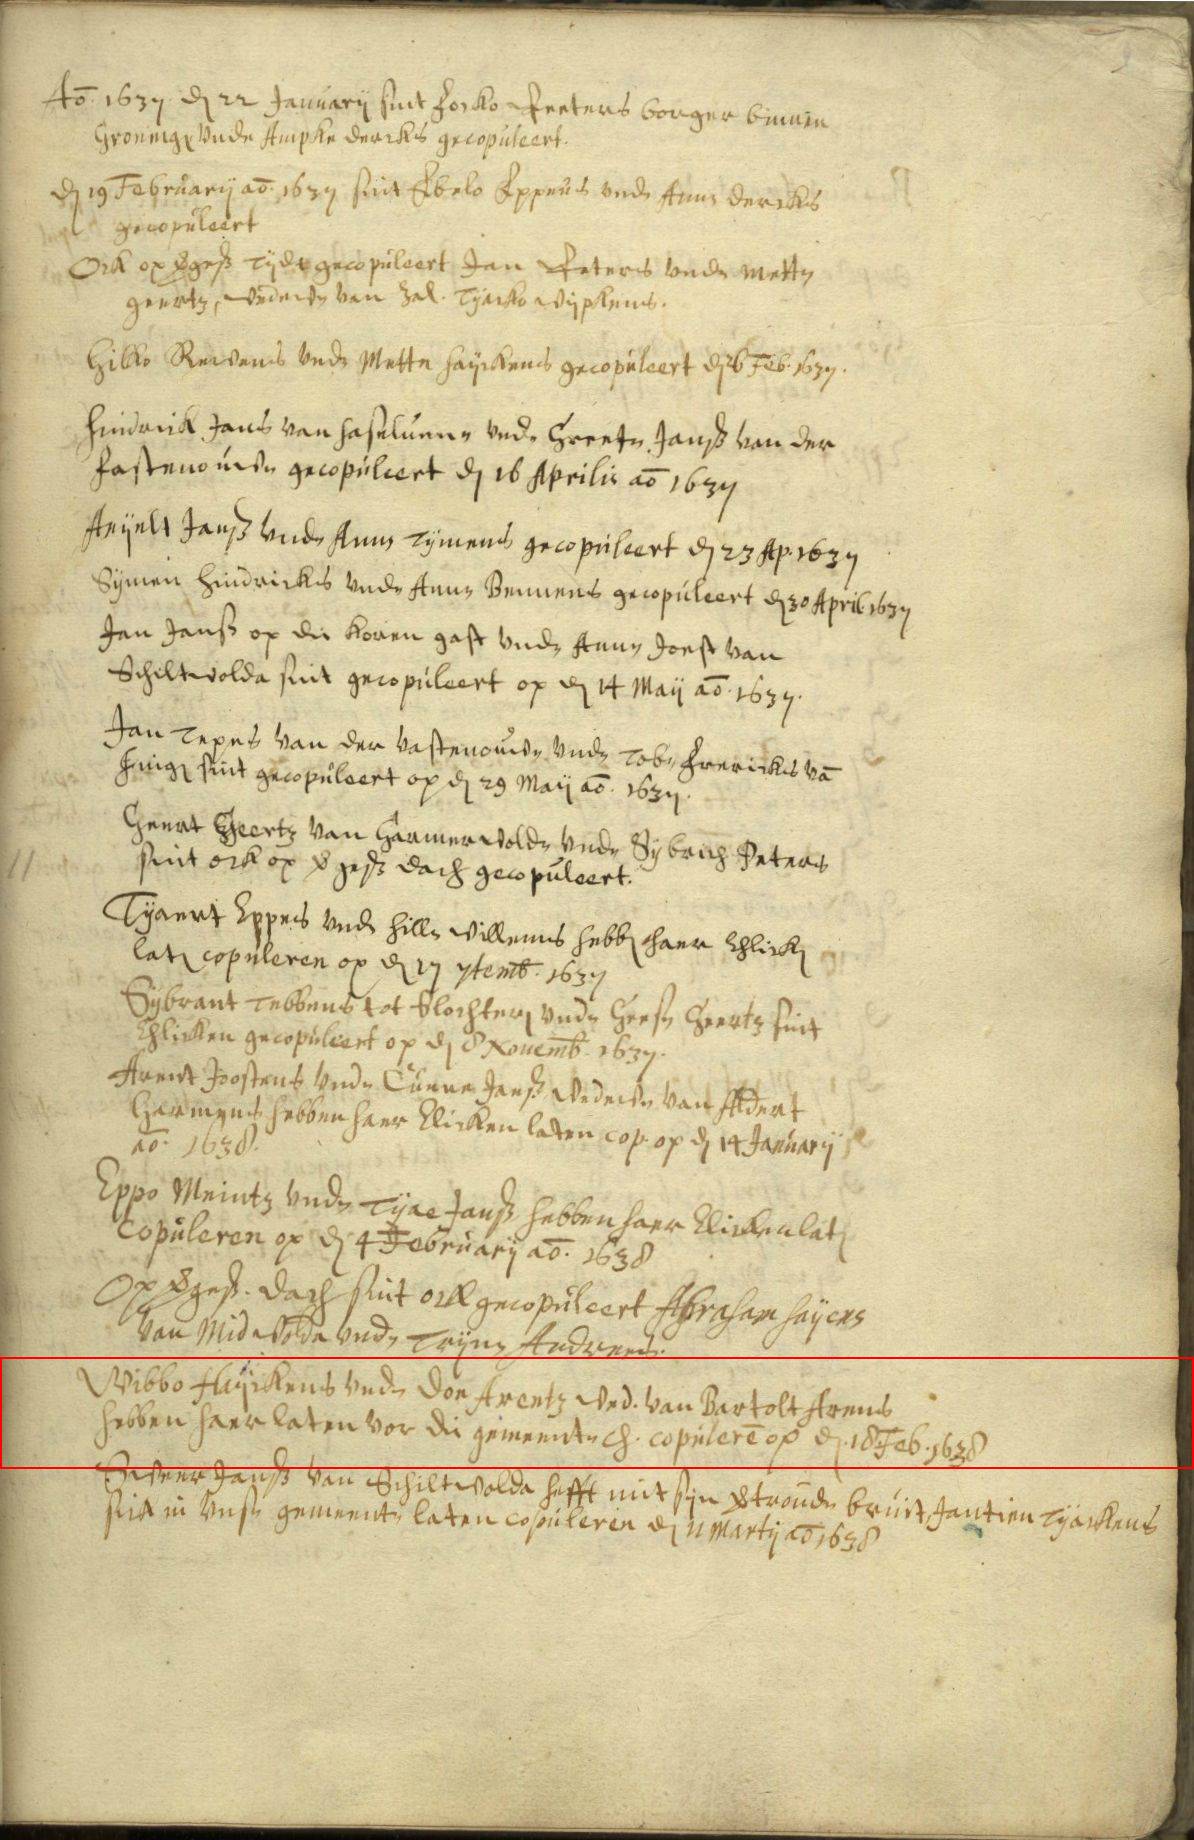 Ao. 1637 den 22 January sint Focko Peeters borger binnen
Groningen unde Ampke dercks gecopuleert.
den 19 February ao. 1637 sint Ebelo Eppens unde Anna dercks
gecopuleert
Ock op vorges tijdt gecopuleert Jan Peters unde Mette
geertz, wedewe van zal. Tjacko Wypkens.
Hibbo Rewens unde Mette Hayckens gecopuleert den 26 Feb. 1637.
Hindrick Jans van Haselunne unde Greete Janss van der
Fastenouwe gecopuleert den 16 Aprilis ao 1637
Aeyelt Janss unde Anna Tymens gecopuleert den 23 Ap. 1637
Symen Hindricks unde Anne Bennens gecopuleert den 30 April 1637
Jan Janss op die koren gast unde Anne Joest van
Schiltwolda sint gecopuleert op den 14 Maij ao. 1637.
Jan Tepes van der vastenouwe unde Tobe Frericks van
sint gecopuleert op den 29 Maij ao. 1637.
Geert Geertz van Garmerwolde unde Sybrich Peters
sint ock op vorges dach gecopuleert.
Tyaert Eppes unde Hille Willems hebben haer Ehlicken
laten copuleren op den 17 7temb. 1637
Sybrant Tebbens tot Slochteren unde Geese Geertz sint
Ehlicken gecopuleert op den 8 Novemb. 1637.
Arent Joostens unde Cunne Janss wedewe van Aldert
Harmens hebben haer Elicken laten cop. op den 14 January
ao. 1638.
Eppo Meintz unde Tyae Janss hebben haer Elicken laten
copuleren op den 4 February ao. 1638
Op vorges. dach sint ock gecopuleert Abraham Hayens
van Midwolda unde Tryne Andrees.
Wibbo Hayckens unde Doe Arentz wed. van Bartolt Arens
hebben haer laten vor die gemeente ch. copuleren op den 18 Feb. 1638
Sweer Janss van Schiltwolda hefft mit syn vertroude bruit Jantien Tyackens
sick in unse gemeente laten copuleren den 11 Martij ao 1638